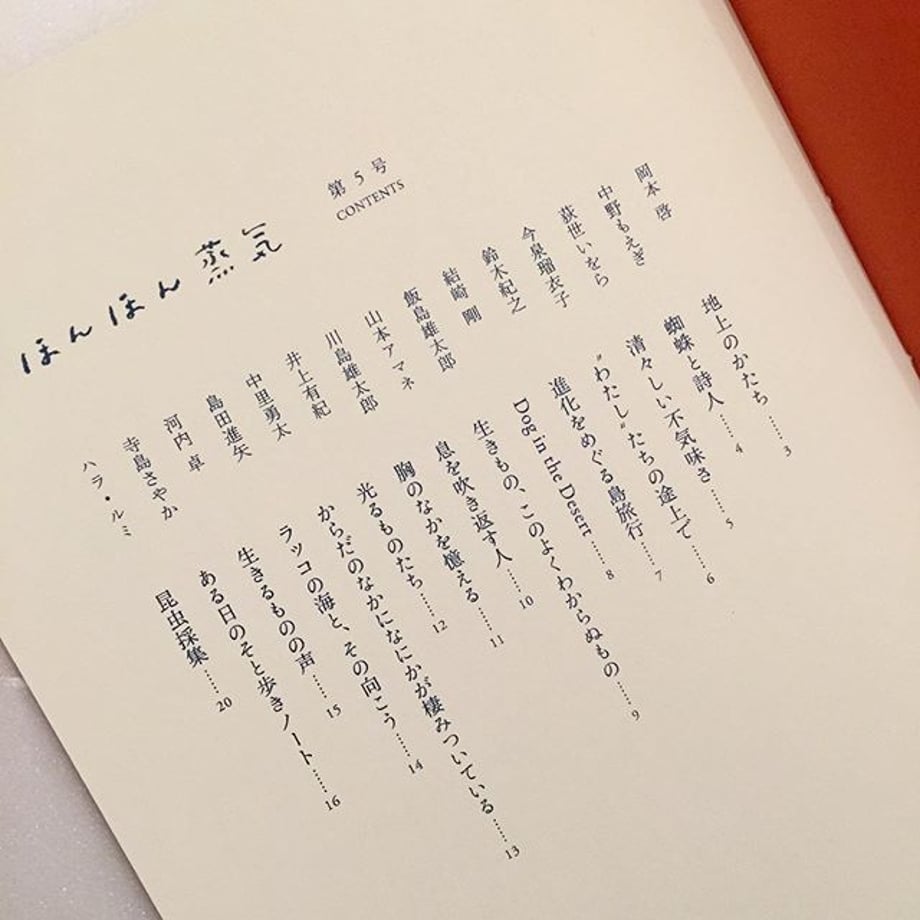 ほんほん蒸気
第5号
CONTENTS
岡本 啓 地上のかたち……3
中野もえぎ 蜘蛛と詩人……4
荻世いをら 清々しい不気味さ……5
今泉瑠衣子 “わたし”たちの途上で……6
鈴木紀之 進化をめぐる島旅行……7
結崎 剛 Dog in the Desert……8
飯島雄太郎 生きもの、このよくわからぬもの……9
山本アマネ 息を吹き返す人……10
川島雄太郎 胸のなかを憶える……11
井上有紀 光るものたち……12
中里勇太 からだのなかになにかが棲みついている……13
島田進矢 ラッコの海と、その向こう……14
河内 卓 生きるものの声……15
寺島さやか ある日のそと歩きノート……16
ハラ・ルミ 昆虫採集……20